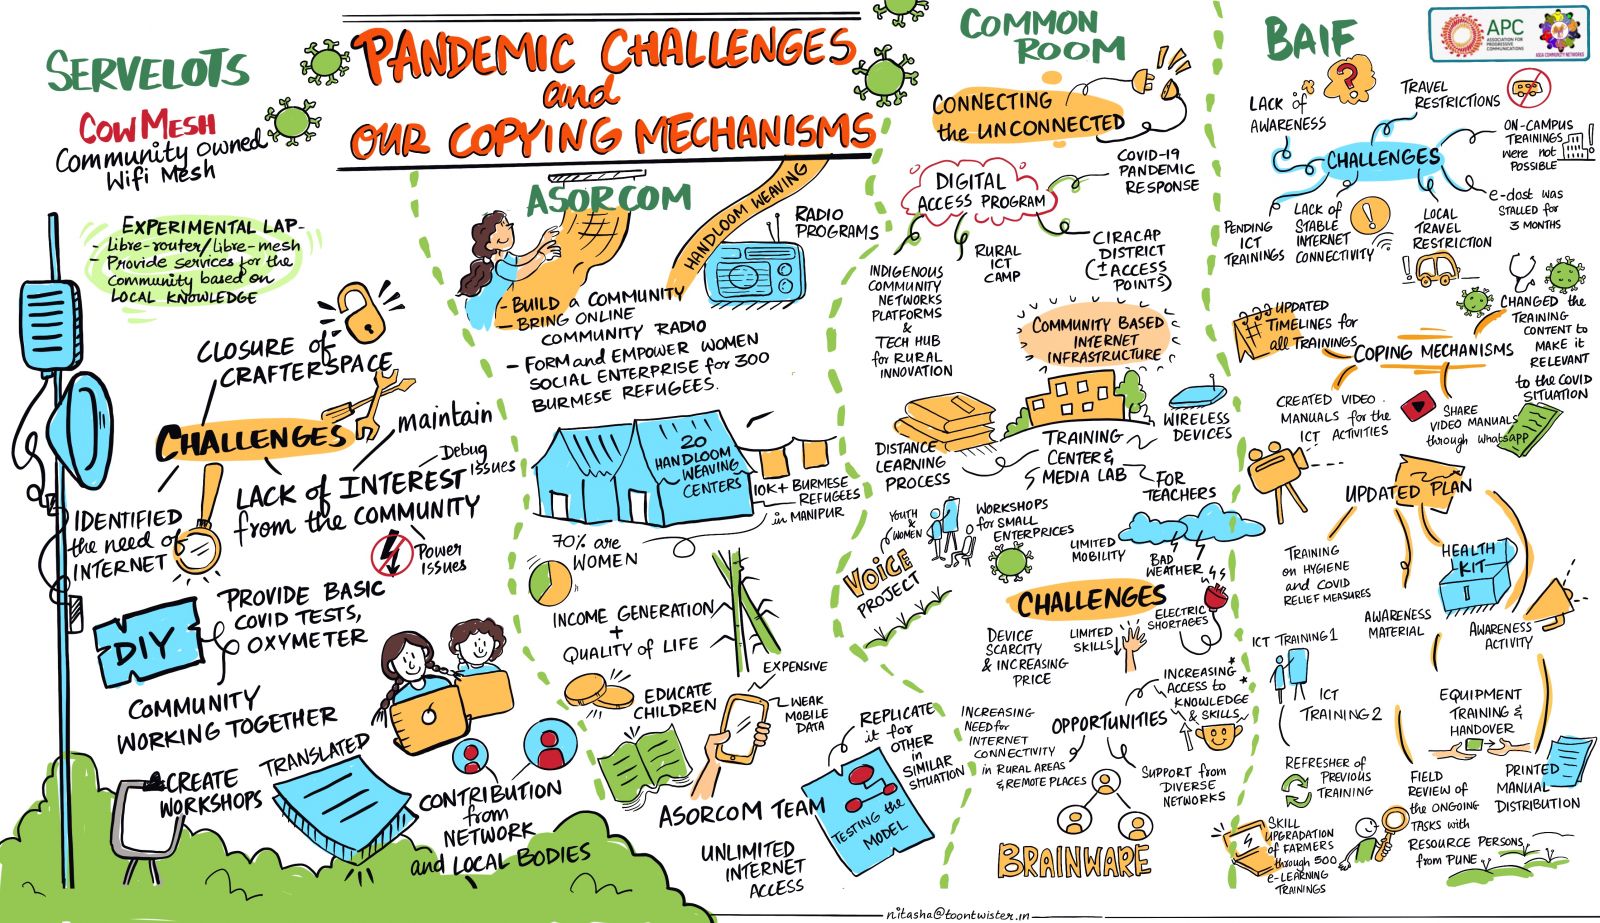 PANDEMIC CHALLENGES
and
OUR COPYING MECHANISMS
SERVELOTS
COWMESH
Community owned
Wifi Mesh
EXPERIMENTAL LAP-
- Libre-router/libre-mesh
- Provide services for the
Community based on
LOCAL KNOWLEDGE
CLOSURE of
CRAFTERSPACE
CHALLENGES
maintain
Debug
issues
LACK of INTEREST
from the COMMUNITY
Power
issues
IDENTIFIED
the need of
INTERNET
DIY
PROVIDE BASIC
COVID TESTS,
OXYMETER
COMMUNITY
WORKING TOGETHER
CREATE
WORKSHOPS
TRANSLATED
CONTRIBUTION
from
NETWORK
and LOCAL BODIES
ASORCOM
HANDLOOM WEAVING
RADIO
PROGRAMS
- BUILD a COMMUNITY
- BRING ONLINE
COMMUNITY RADIO
- FORM and EMPOWER WOMEN
SOCIAL ENTERPRISE for 300
BURMESE REFUGEES.
20
HANDLOOM
WEAVING
CENTERS
10K+ BURMESE
REFUGEES
in MANIPUR
70% are
WOMEN
INCOME GENERATION
+
QUALITY of LIFE
EDUCATE
CHILDREN
EXPENSIVE
WEAK
MOBILE
DATA
REPLICATE
it for
OTHER
in
SIMILAR
SITUATION
TESTING the
MODEL
ASORCOM TEAM
UNLIMITED
INTERNET
ACCESS
COMMON
ROOM
CONNECTING
the UNCONNECTED
DIGITAL
ACCESS PROGRAM
COVID-19
PANDEMIC
RESPONSE
INDIGENOUS
COMMUNITY
NETWORKS
PLATFORMS
&
TECH HUB
for RURAL
INNOVATION
RURAL
ICT
CAMP
CIRACAP
DISTRICT
(± ACCESS
POINTS)
COMMUNITY BASED
INTERNET
INFRASTRUCTURE
DISTANCE
LEARNING
PROCESS
TRAINING
CENTER &
MEDIA LAB
WIRELESS
DEVICES
FOR
TEACHERS
YOUTH
&
WOMEN
VOICE
PROJECT
WORKSHOPS
for SMALL
ENTERPRICES
LIMITED
MOBILITY
BAD
WEATHER
CHALLENGES
DEVICE
SCARCITY
& INCREASING
PRICE
LIMITED
SKILLS
ELECTRIC
SHORTAGES
OPPORTUNITIES
INCREASING
ACCESS to
KNOWLEDGE
& SKILLS
INCREASING
NEED for
INTERNET
CONNECTIVITY
in RURAL AREAS
& REMOTE PLACES
SUPPORT from
DIVERSE
NETWORKS
BRAINWARE
BAIF
APC
ASSOCIATION FOR
PROGRESSIVE
COMMUNICATIONS
ASIA COMMUNITY NETWORKS
LACK of
AWARENESS
TRAVEL
RESTRICTIONS
ON-CAMPUS
TRAININGS
were not
POSSIBLE
CHALLENGES
e-dost was
STALLED for
3 MONTHS
PENDING
ICT
TRAININGS
LACK of
STABLE
INTERNET
CONNECTIVITY
LOCAL
TRAVEL
RESTRICTION
UPDATED
TIMELINES for
all TRAININGS
COPING MECHANISMS
CHANGED the
TRAINING
CONTENT to
MAKE it
RELEVANT
to the COVID
SITUATION
CREATED VIDEO
MANUALS for the
ICT ACTIVITIES
SHARE
VIDEO MANUALS
through WhatsApp
UPDATED PLAN
TRAINING
on HYGIENE
and COVID
RELIEF MEASURES
HEALTH
KIT
AWARENESS
MATERIAL
AWARENESS
ACTIVITY
ICT TRAINING 1
ICT
TRAINING 2
EQUIPMENT
TRAINING &
HANDOVER
REFRESHER of
PREVIOUS
TRAINING
FIELD
REVIEW of
the ONGOING
TASKS with
RESOURCE PERSONS
from PUNE
PRINTED
MANUAL
DISTRIBUTION
SKILL
UPGRADATION
of FARMERS
through 500
e-LEARNING
TRAININGS
nitasha@toontwister.in